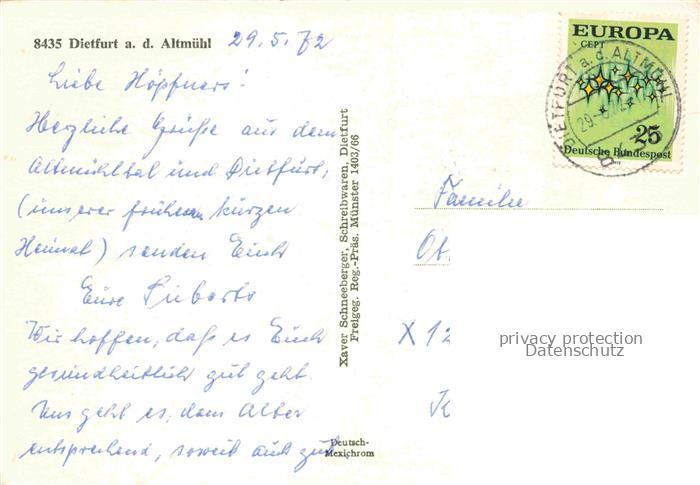 8435 Dietfurt a. d. Altmühl 29.5.72
Liebe Höpfners!
Herzliche Grüße aus dem
Altmühltal und Dietfurt,
(unserer früheren kurzen
Heimat) senden Euch
Eure
Wir hoffen, daß es Euch
gesundheitlich gut geht.
Uns geht es, dem Alter
entsprechend, soweit auch gut
Xaver Schneeberger, Schreibwaren, Dietfurt
Freigeg. Reg.-Präs. Münster 1403/66
Deutsch-
Mexichrom
EUROPA
CEPT
25
Deutsche Bundespost
DIETFURT a. d. ALTMÜHL
Familie
X 12
privacy protection
Datenschutz